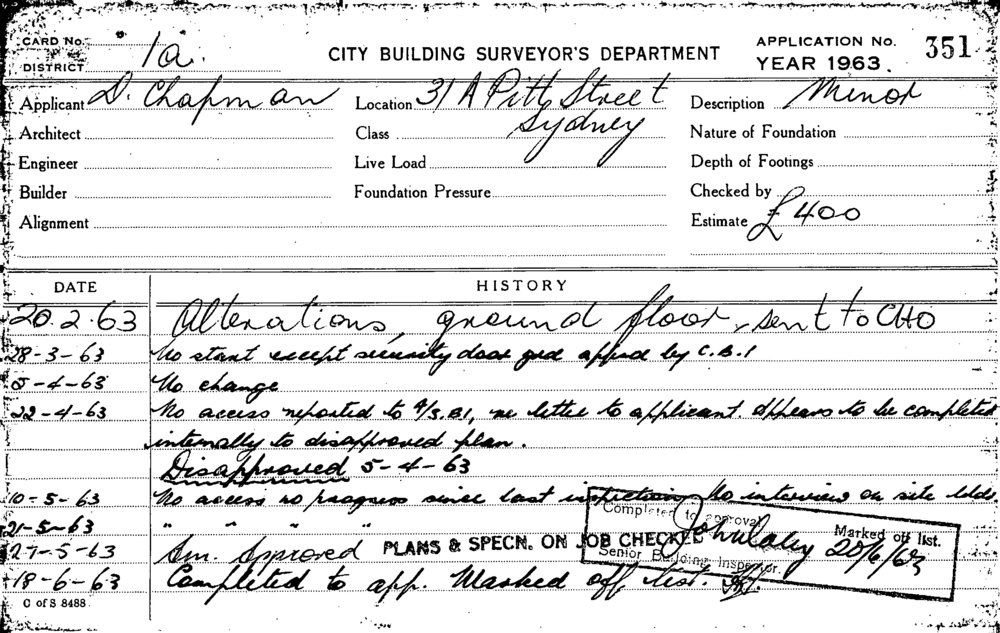 CARD No. "1a". CITY BUILDING SURVEYOR'S DEPARTMENT APPLICATION No. 351
DISTRICT YEAR 1963.
Applicant D. Chapman Location 31A Pitt Street Description Minor
Architect Class Sydney Nature of Foundation
Engineer Live Load Depth of Footings
Builder Foundation Pressure Checked by
Alignment Estimate £400
DATE HISTORY
20.2.63 Alterations, ground floor, sent to CHO
28-3-63 No start except security door grd approd by C.B.I
5-4-63 No change
22-4-63 No access reported to A/S.B.I, re letter to applicant. Appears to be completed
internally to disapproved plan.
Disapproved 5-4-63
10-5-63 No access no progress since last inspection No interview on site
21-5-63 " " " "
27-5-63 Approved PLANS & SPECN. ON JOB CHECKED
18-6-63 Completed to app. Marked off list.
Completed to approval Marked off list.
20/6/63
Senior Building Inspector.
C of S 8488